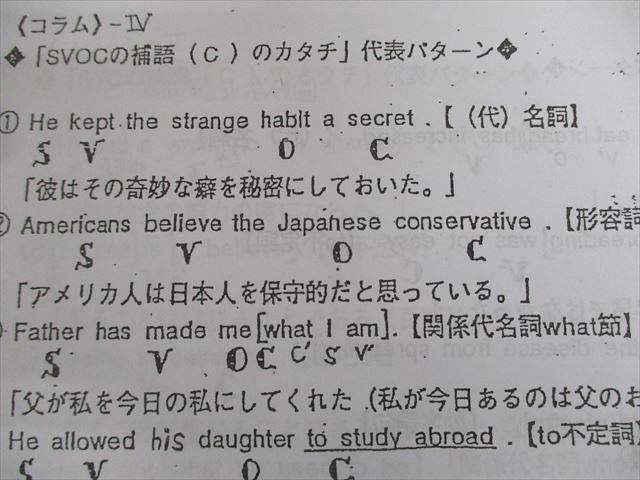 〈コラム〉-Ⅳ
「SVOCの補語（C）のカタチ」代表パターン
① He kept the strange habit a secret .【（代）名詞】
S V O C
「彼はその奇妙な癖を秘密にしておいた。」
② Americans believe the Japanese conservative .【形容詞
S V O C
「アメリカ人は日本人を保守的だと思っている。」
Father has made me [what I am].【関係代名詞what節】
S V O C C' S' V'
「父が私を今日の私にしてくれた.（私が今日あるのは父のお
He allowed his daughter to study abroad .【to不定詞】
S V O C